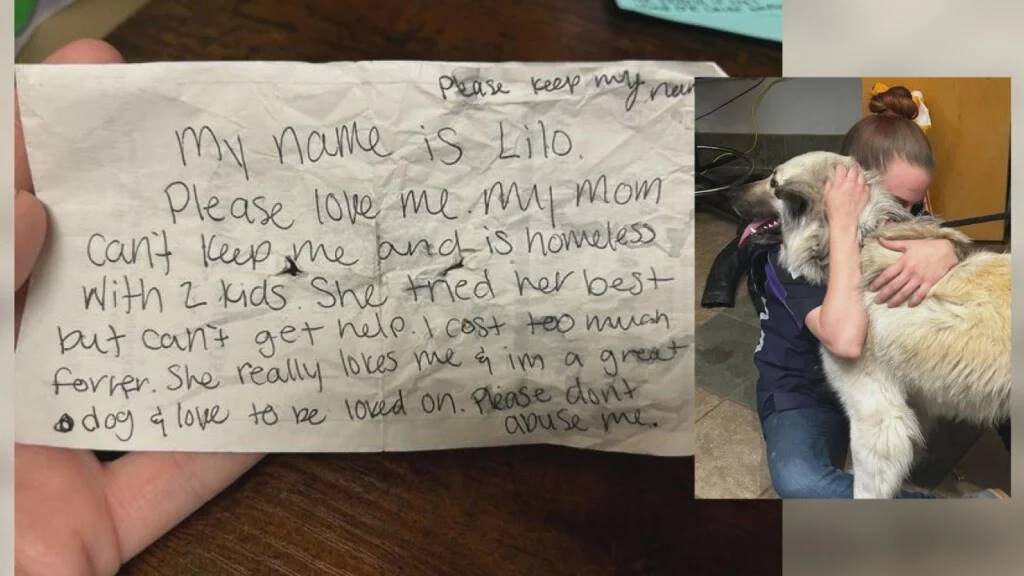 Please keep my
My name is Lilo.
Please love me. My Mom
can't keep me and is homeless
with 2 kids. She tried her best
but can't get help. I cost too much
forrer. She really loves me & im a great
dog & love to be loved on. Please dont
abuse me.